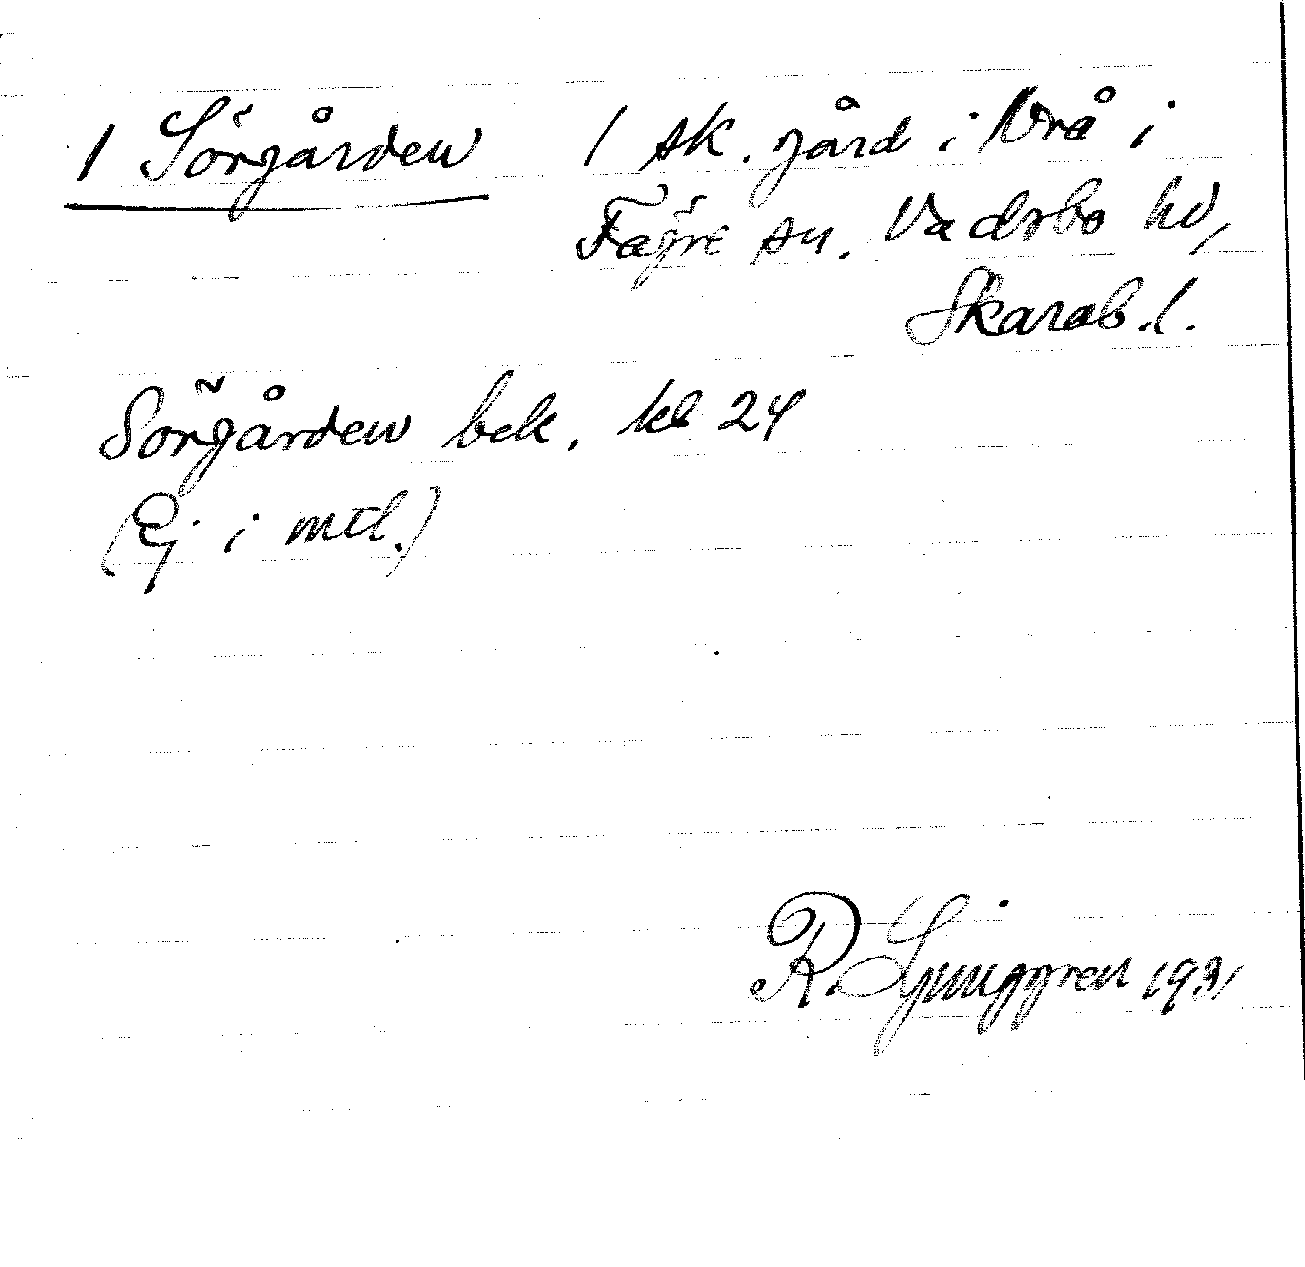 / Sörgården / sk. gård i Vrå i
Fägre sn. Vadsbo hd,
Skarab. l.
Sörgården bek. kb 24
(Ej i mtl.)
R. Ljunggren 1931